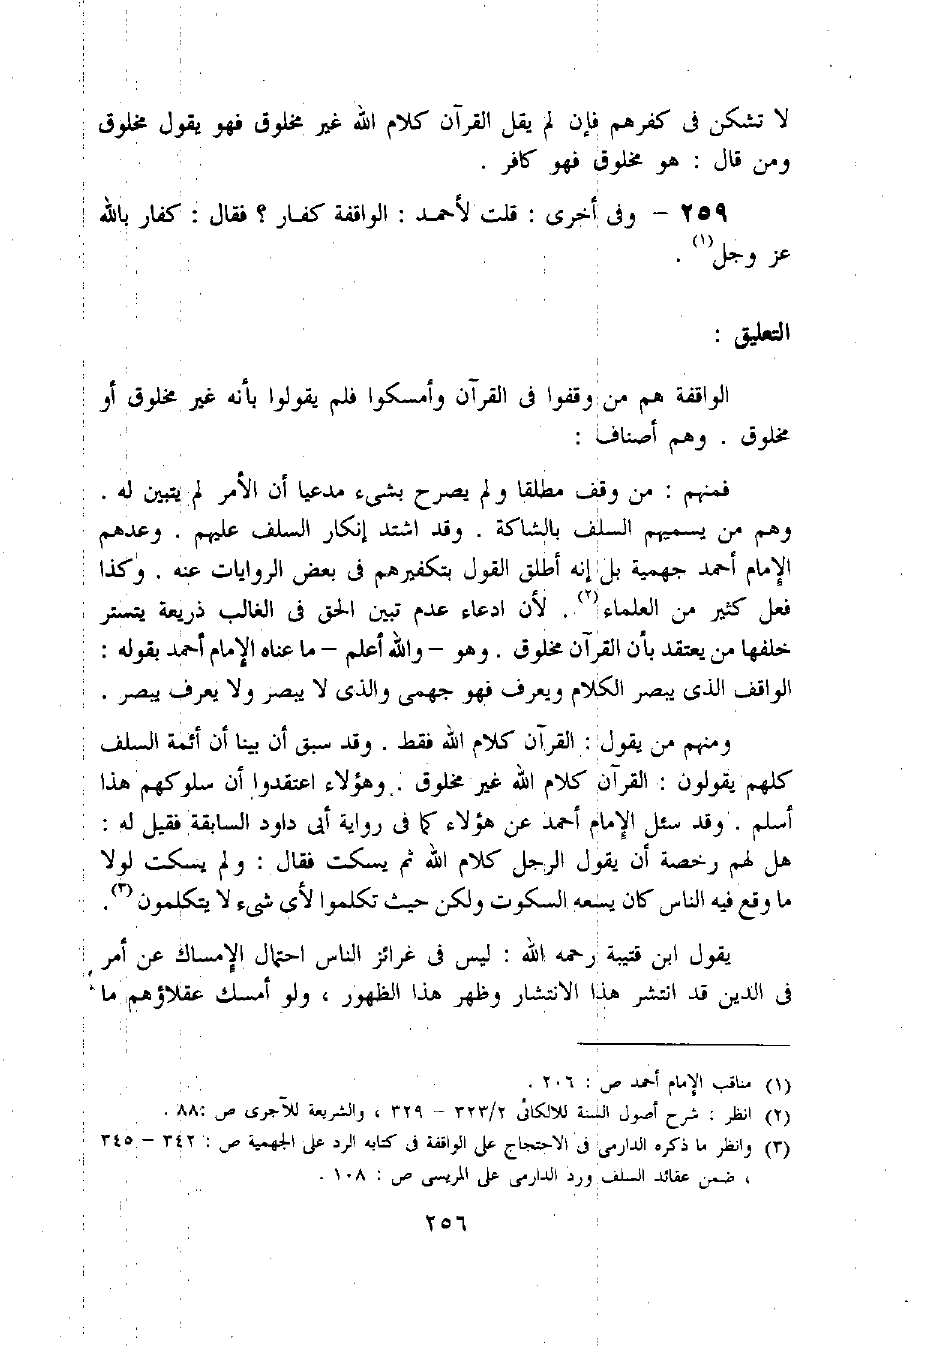 لا تشكن فى كفرهم فإن لم يقل القرآن كلام الله غير مخلوق فهو يقول مخلوق
ومن قال : هو مخلوق فهو كافر .
٢٥٩ – وفى أخرى : قلت لأحمد : الواقفة كفار ؟ فقال : كفار بالله
عز وجل(١) .
التعليق :
الواقفة هم من وقفوا فى القرآن وأمسكوا فلم يقولوا بأنه غير مخلوق أو
مخلوق . وهم أصناف :
فمنهم : من وقف مطلقا ولم يصرح بشىء مدعيا أن الأمر لم يتبين له .
وهم من يسميهم السلف بالشاكة . وقد اشتد إنكار السلف عليهم . وعدهم
الإمام أحمد جهمية بل إنه أطلق القول بتكفيرهم فى بعض الروايات عنه . وكذا
فعل كثير من العلماء(٢) . لأن ادعاء عدم تبين الحق فى الغالب ذريعة يتستر
خلفها من يعتقد بأن القرآن مخلوق . وهو – والله أعلم – ما عناه الإمام أحمد بقوله :
الواقف الذى يبصر الكلام ويعرف فهو جهمى والذى لا يبصر ولا يعرف يبصر .
ومنهم من يقول : القرآن كلام الله فقط . وقد سبق أن بينا أن أئمة السلف
كلهم يقولون : القرآن كلام الله غير مخلوق . وهؤلاء اعتقدوا أن سلوكهم هذا
أسلم . وقد سئل الإمام أحمد عن هؤلاء كما فى رواية أبى داود السابقة فقيل له :
هل لهم رخصة أن يقول الرجل كلام الله ثم يسكت فقال : ولم يسكت لولا
ما وقع فيه الناس كان يسعه السكوت ولكن حيث تكلموا لأى شىء لا يتكلمون(٣) .
يقول ابن قتيبة رحمه الله : ليس فى غرائز الناس احتمال الإمساك عن أمر
فى الدين قد انتشر هذا الانتشار وظهر هذا الظهور ، ولو أمسك عقلاؤهم ما
(١) مناقب الإمام أحمد ص : ٢٠٦ .
(٢) انظر : شرح أصول السنة للالكائى ٣٢٣/٢ – ٣٢٩ ، والشريعة للآجرى ص :٨٨ .
(٣) وانظر ما ذكره الدارمى فى الاحتجاج على الواقفة فى كتابه الرد على الجهمية ص : ٣٤٢ – ٣٤٥
، ضمن عقائد السلف ورد الدارمى على المريسى ص : ١٠٨ .
٢٥٦